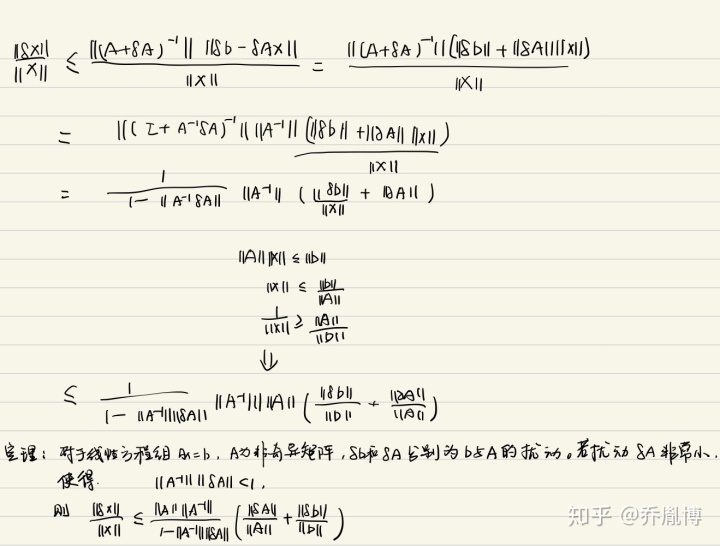 ||δx||/||x|| ≤ ||(A+δA)⁻¹|| ||δb - δAx||/||x|| = ||(A+δA)⁻¹||(||δb|| + ||δA|| ||x||)/||x||
= ||(I + A⁻¹δA)⁻¹|| ||A⁻¹|| (||δb|| + ||δA|| ||x||)/||x||
= 1/(1 - ||A⁻¹δA||) ||A⁻¹|| (||δb||/||x|| + ||δA||)
||A|| ||x|| ≤ ||b||
||x|| ≤ ||b||/||A||
1/||x|| ≥ ||A||/||b||
⇓
≤ 1/(1 - ||A⁻¹|| ||δA||) ||A⁻¹|| ||A|| (||δb||/||b|| + ||δA||/||A||)
定理: 对于线性方程组 Ax=b, A为非奇异矩阵, δb和δA分别为b与A的扰动。若扰动δA非常小,
使得 ||A⁻¹|| ||δA|| < 1,
则 ||δx||/||x|| ≤ ||A|| ||A⁻¹||/(1-||A⁻¹|| ||δA||) (||δA||/||A|| + ||δb||/||b||)
知乎 @乔胤博